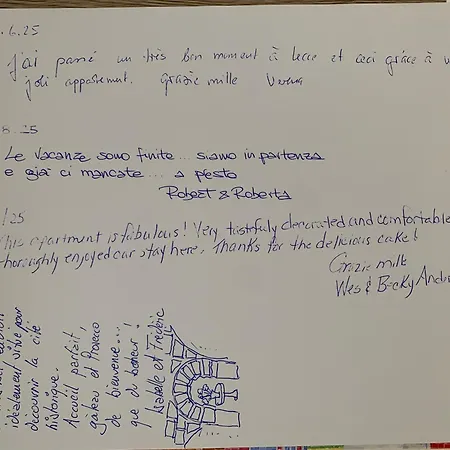 .6.25
j'ai passé un très bon moment à Lecce et ceci grâce à
joli appartement. Grazie mille Verena
8.25
Le vacanze sono finite... siamo in partenza
e già ci mancate... a presto
Robert & Roberta
/25
This apartment is fabulous! Very tastefully decorated and comfortable
thoroughly enjoyed our stay here, Thanks for the delicious cake!
Grazie mille
Wes & Becky
idéalement situé pour
découvrir la cité
historique.
Accueil parfait
gateau et Prosecco
de bienvenue...
que du bonheur!
Isabelle et Frédéric